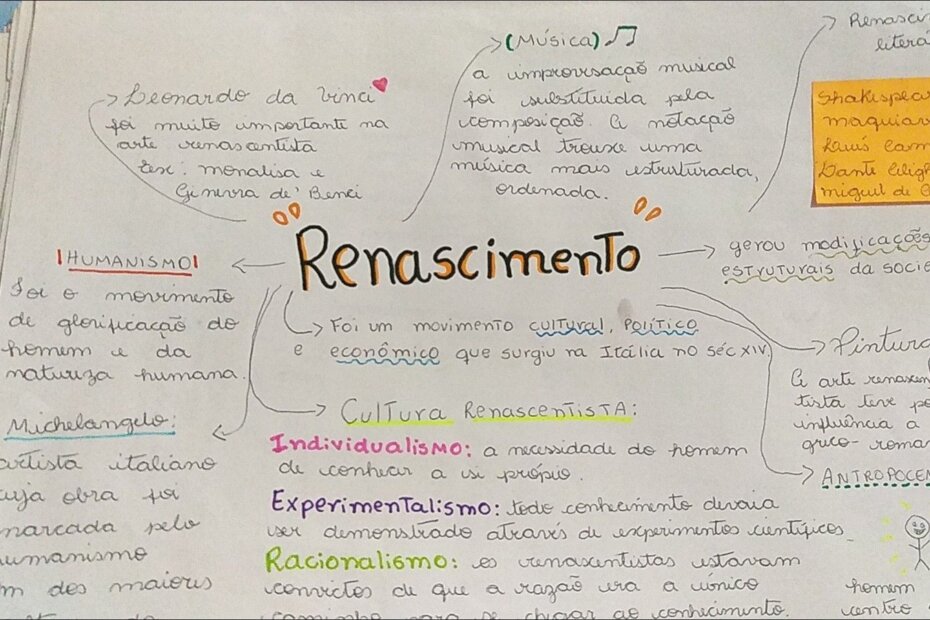 Leonardo da Vinci
foi muito importante na
arte renascentista
ex: monalisa e
Ginevra de' Benci
(Música)
a improvisação musical
foi substituida pela
composição. A notação
musical trouxe uma
música mais estruturada,
ordenada.
Renasci
literá
Shakespea
maquiav
Luís Cam
Dante Aligh
miguel de C
Renascimento
gerou modificações
estruturais da socie
|HUMANISMO|
Foi o movimento
de glorificação do
homem e da
natureza humana.
Foi um movimento cultural, político
e econômico que surgiu na Itália no séc XIV.
Pintura
A arte renascen
tista teve po
influência a
greco-roma
ANTROPOCEN
homem
centro
Michelangelo:
artista italiano
cuja obra foi
marcada pelo
humanismo
m dos maiores
Cultura Renascentista:
Individualismo: a necessidade do homem
de conhecer a si próprio.
Experimentalismo: todo conhecimento devaia
ser demonstrado através de experimentos científicos.
Racionalismo: os renascentistas estavam
convictos de que a razão era a único
caminho para se chegar ao conhecimento.